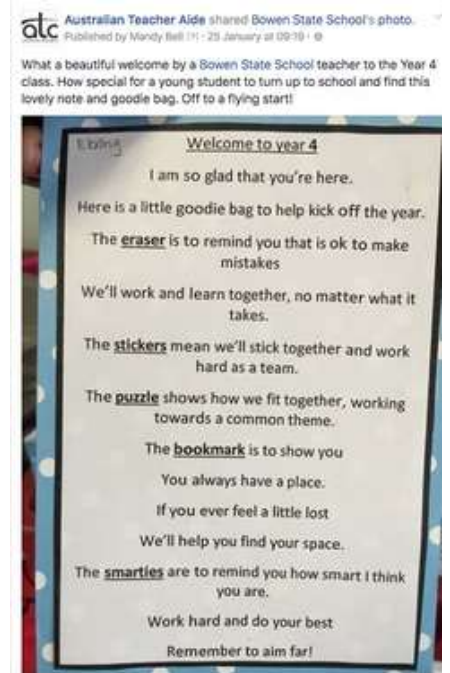 atc
Australian Teacher Aide shared Bowen State School's photo.
Published by Mandy Bell · 25 January at 09:19 ·
What a beautiful welcome by a Bowen State School teacher to the Year 4
class. How special for a young student to turn up to school and find this
lovely note and goodie bag. Off to a flying start!
Welcome to year 4
I am so glad that you're here.
Here is a little goodie bag to help kick off the year.
The eraser is to remind you that is ok to make
mistakes
We'll work and learn together, no matter what it
takes.
The stickers mean we'll stick together and work
hard as a team.
The puzzle shows how we fit together, working
towards a common theme.
The bookmark is to show you
You always have a place.
If you ever feel a little lost
We'll help you find your space.
The smarties are to remind you how smart I think
you are.
Work hard and do your best
Remember to aim far!